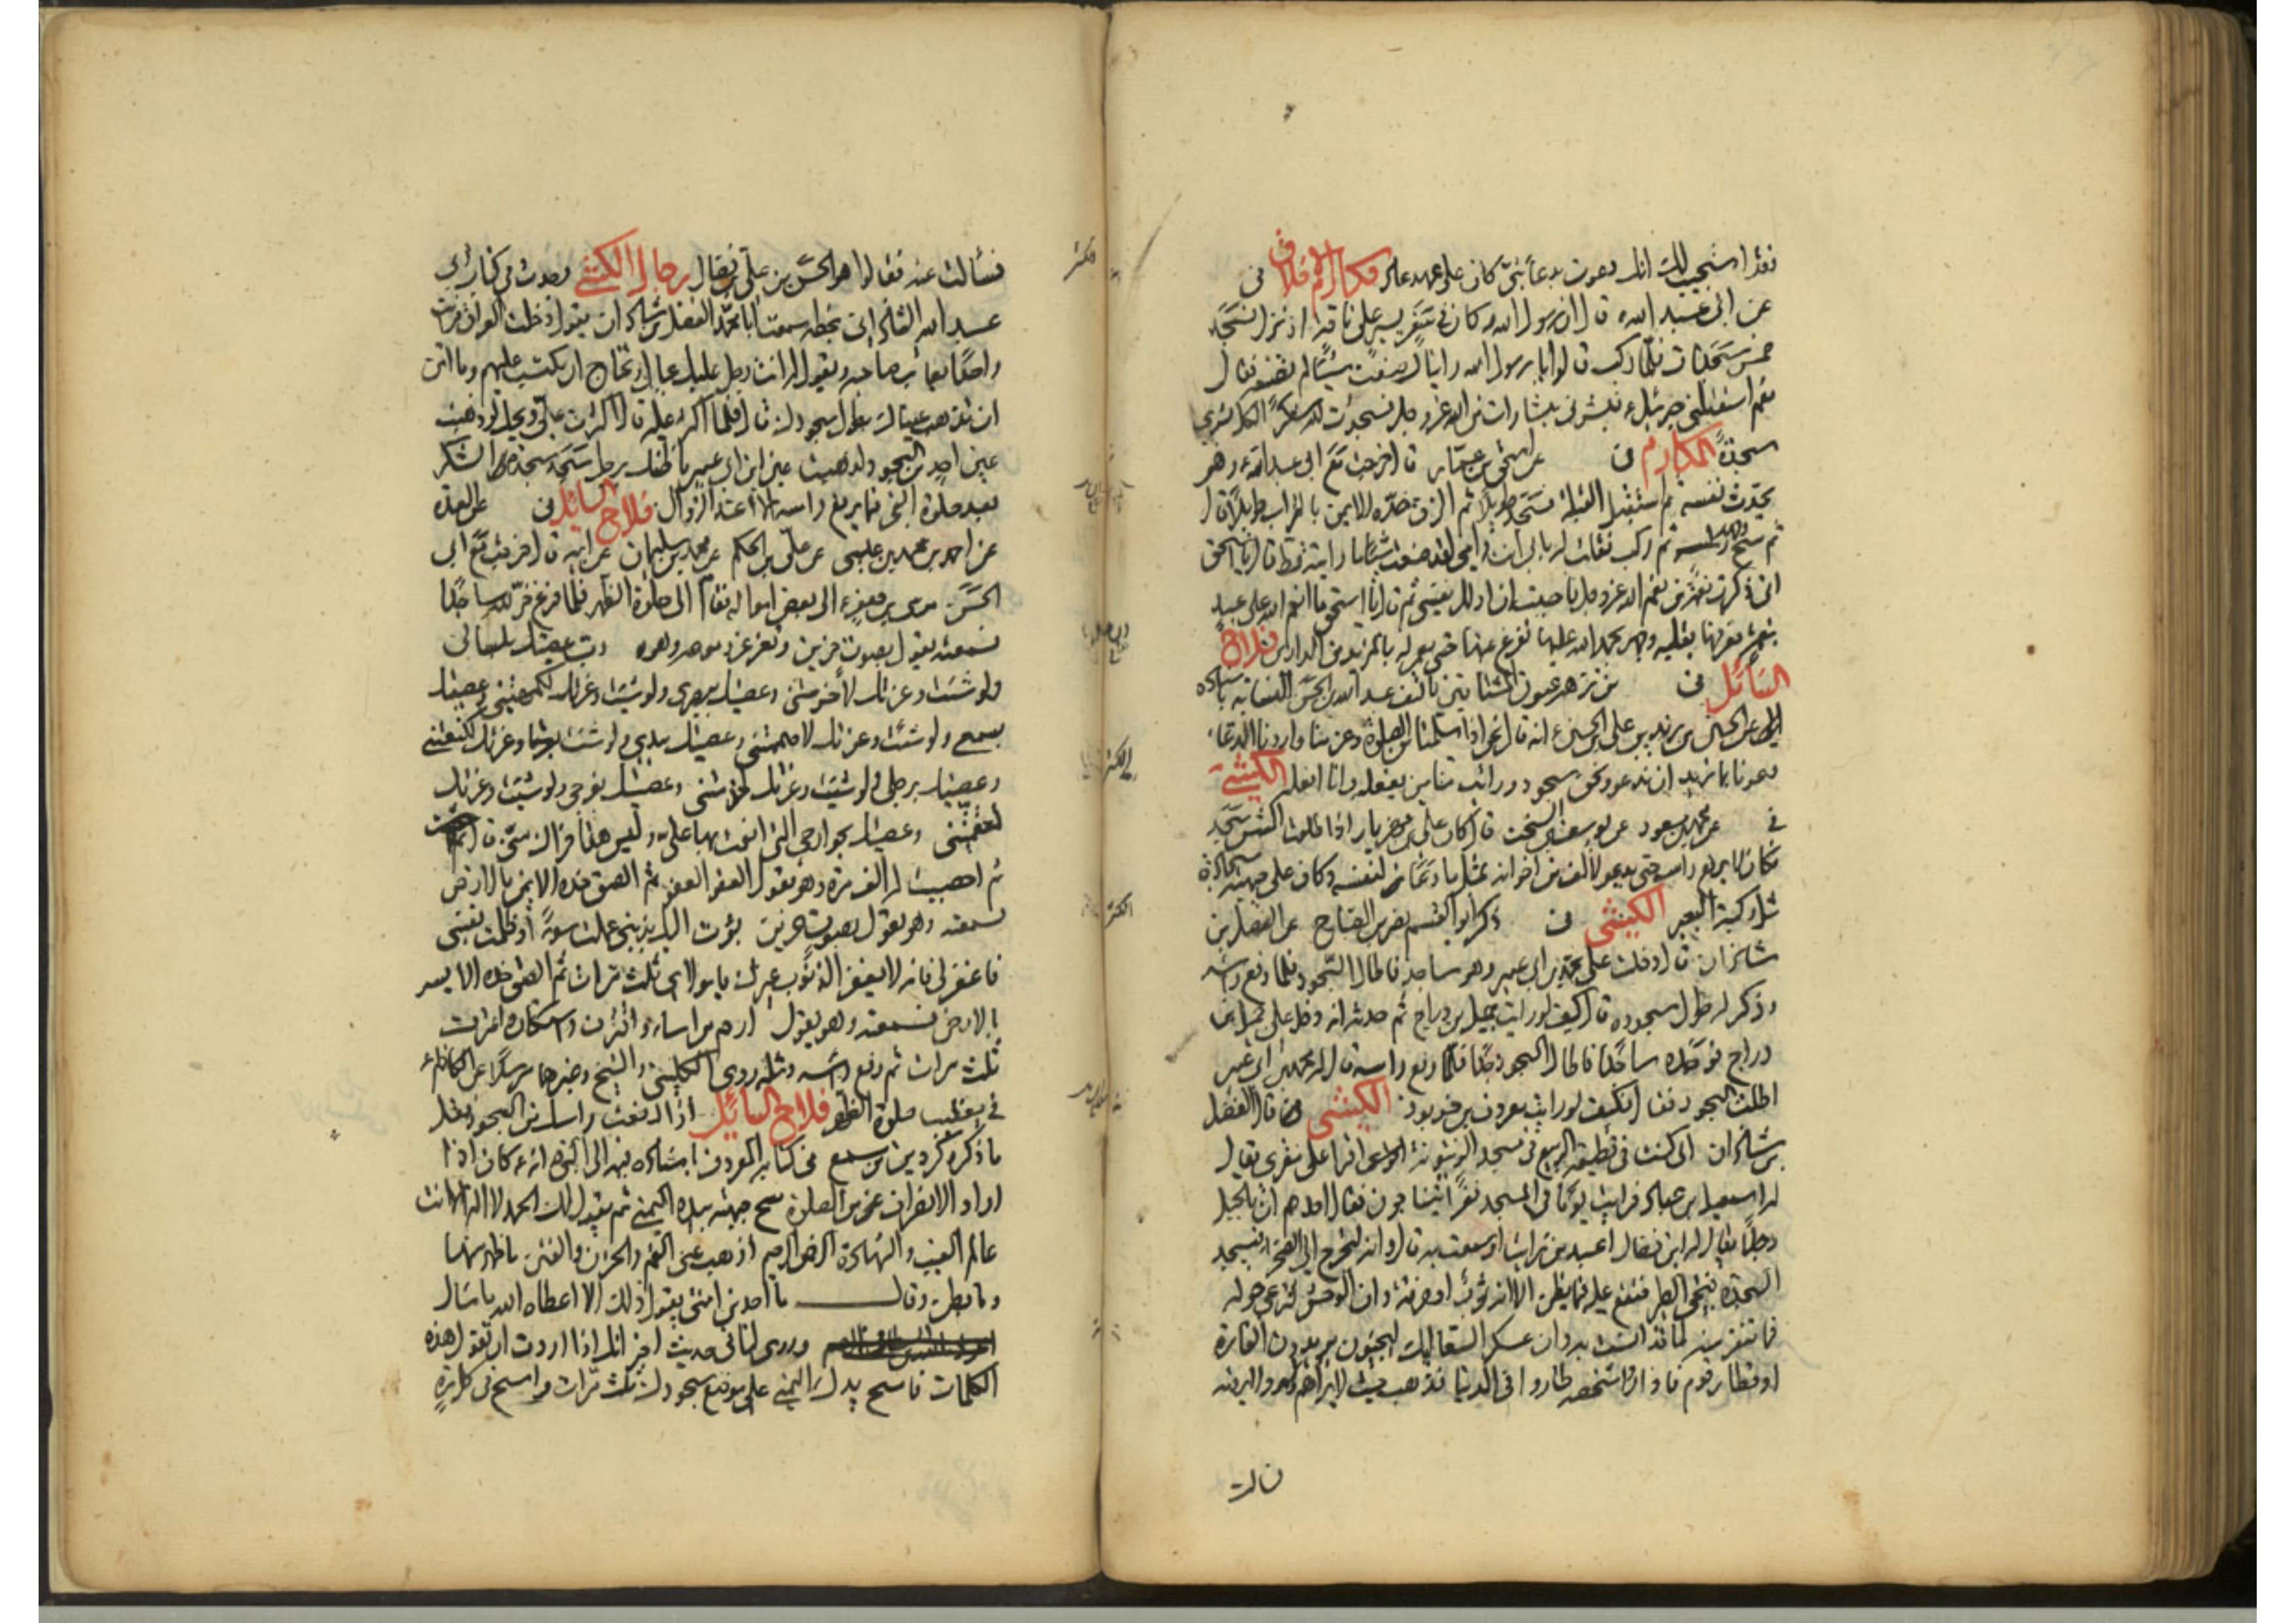 فقد استجيب لك انك دعوت بدعاء نبي كان على عهد عاد مكارم الاخلاق في
عن ابي عبد الله ع قال ان رسول الله كان في سفر يسير على ناقة اذ نزل فسجد
خمس سجدات فلما ركب قالوا يا رسول الله رأيناك صنعت شيئا لم تصنعه فقال
نعم استقبلني جبرئيل ع فبشرني ببشارات من الله عز وجل فسجدت لله شكرا لكل بشرى
سجدة المكارم في عن اسحق بن عمار قال خرجت مع ابي عبد الله ع وهو
يحدث نفسه ثم استقبل القبلة فسجد طويلا ثم الزق خده الايمن بالتراب طويلا قال
ثم مسح وجهه ثم ركب فقلت له بابي انت وامي لقد صنعت شيئا ما رأيته قط قال يا اسحق
اني ذكرت نعمة من نعم الله عز وجل فاحببت ان اذلل نفسي ثم قال يا اسحق ما انعم الله على عبد
بنعمة فعرفها بقلبه وجهر بحمد الله عليها ففرغ منها حتى يؤمر له بالمزيد من الدارين فلاح
السائل في من زهر عيون تأليف عبد الله بن الحسن النسابة باسناده
الى عن الحسين بن زيد بن علي بن الحسين ع انه قال نحن اذا سلمنا من الصلوة وعزمنا واردنا الدعاء
دعونا بما نريد ان ندعو ونحن سجود ورأيت منا من يفعله وانا افعله الكشي
في عن محمد بن مسعود عن يوسف بن السخت قال كان علي بن مهزيار اذا طلعت الشمس سجد
فكان لا يرفع رأسه حتى يدعو لالف من اخوانه بمثل ما دعا لنفسه وكان على جبهته سجادة
مثل ركبة البعير الكشي في ذكر ابو القسم نصر بن الصباح عن الفضل بن
شاذان قال دخلت على محمد بن ابي عمير وهو ساجد فاطال السجود فلما رفع رأسه
وذكر له طول سجوده قال كيف لو رأيت جميل بن دراج ثم حدثه انه دخل على جميل بن
دراج فوجده ساجدا فاطال السجود جدا فلما رفع رأسه قال له محمد بن ابي عمير
اطلت السجود فقال كيف لو رأيت معروف بن خربوذ الكشي قال الفضل
بن شاذان اني كنت في قطيعة الربيع في مسجد الزيتونة اقرأ على مقرئ يقال
له اسمعيل بن عباد فرأيت يوما في المسجد نفرا يتناجون فقال احدهم ان بالجبل
رجلا يقال له ابن فضال اعبد من رأيت او سمعت به قال وانه ليخرج الى الصحراء فيسجد
السجدة فيجئ الطير فتقع عليه فما يظن الا انه ثوب او خرقة وان الوحش لترعى حوله
فما تنفر منه لما قد انست به وان عسكر الصعاليك ليجيئون يريدون الغارة
او قتال قوم فاذا رأوا شخصه طاروا في الدنيا فذهب حيث لا يراهم ولا يرونه
فسألت
فسألت عنه فقالوا هو الحسن بن علي بن فضال رجال الكشي وجدت في كتاب ابي
عبد الله الشاذاني بخطه سمعت ابا محمد الفضل بن شاذان يقول دخلت العراق فرأيت
واحدا يعاتب صاحبه ويقول له انت رجل عليك عيال وتحتاج ان تكتسب عليهم وما آمن
ان تذهب عيناك بطول سجودك قال فلما اكثر عليه قال اكثرت علي ويحك لو ذهبت
عين احد من السجود لذهبت عين ابن ابي عمير ما ظنك برجل سجد سجدة الشكر
بعد صلوة الفجر فما يرفع رأسه الا عند الزوال فلاح السائل في عن العدة
عن احمد بن محمد بن عيسى عن علي بن الحكم عن محمد بن سليمان عن ابيه قال خرجت مع ابي
الحسن موسى بن جعفر ع الى بعض امواله فقام الى صلوة الظهر فلما فرغ خر لله ساجدا
فسمعته يقول بصوت حزين وتغرغر دموعه وهو رب عصيتك بلساني
ولو شئت وعزتك لاخرستني وعصيتك ببصري ولو شئت وعزتك لكمهتني وعصيتك
بسمعي ولو شئت وعزتك لاصممتني وعصيتك بيدي ولو شئت وعزتك لكنعتني
وعصيتك برجلي ولو شئت وعزتك لجذمتني وعصيتك بفرجي ولو شئت وعزتك
لعقمتني وعصيتك بجوارحي التي انعمت بها علي وليس هذا جزاك مني قال
ثم احصيت له الف مرة وهو يقول العفو العفو ثم الصق خده الايمن بالارض
فسمعته وهو يقول بصوت حزين بؤت اليك بذنبي عملت سوءا وظلمت نفسي
فاغفر لي فانه لا يغفر الذنوب غيرك يا مولاي ثلث مرات ثم الصق خده الايسر
بالارض فسمعته وهو يقول ارحم من اساء واقترف واستكان واعترف
ثلث مرات ثم رفع رأسه ومثله روى الكليني والشيخ وغيرهما مرسلا عن الكاظم ع
في تعقيب صلوة الظهر فلاح السائل اذا رفعت رأسك من السجود فقل
ما ذكره كردين بن مسمع في كتابه المعروف باسناده فيه الى النبي ص انه كان اذا
اراد الانصراف من الصلوة مسح جبهته بيده اليمنى ثم يقول لك الحمد لا اله الا انت
عالم الغيب والشهادة الرحمن الرحيم اذهب عني الغم والحزن والفتن ما ظهر منها
وما بطن وقال ما احد من امتي يقول ذلك الا اعطاه الله ما سأل
وروى لنا في حديث اخر انك اذا اردت ان تقول هذه
الكلمات فامسح يدك اليمنى على موضع سجودك ثلث مرات وامسح في كل مرة